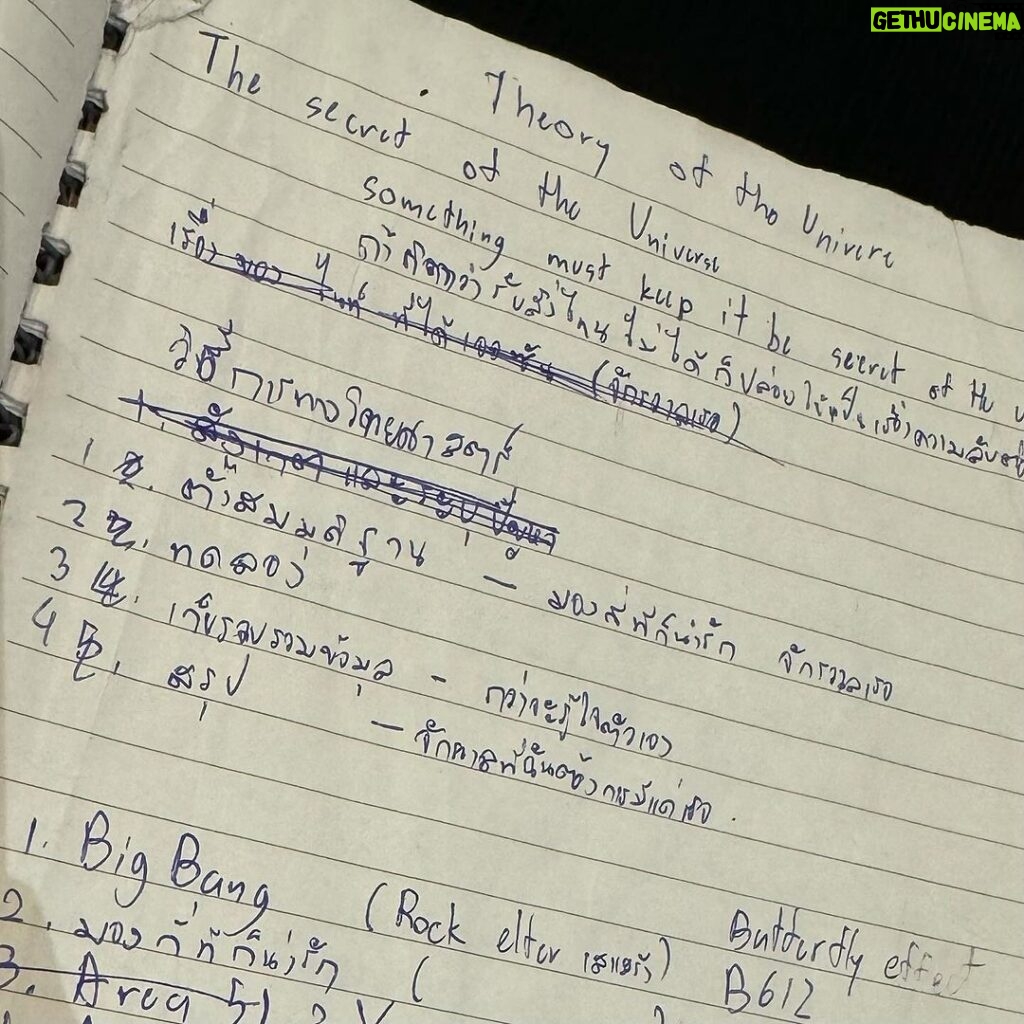 GETHUCINEMA
Theory of the Univere
The secret of the Universe
something must keep it be secret of the
ถ้าคิดว่ารับสิ่งไหนไม่ได้ก็ปล่อยให้เป็นเรื่องความลับ
(จักรวาลเธอ)
วิธีการทางวิทยาศาสตร์
1. ตั้งสมมติฐาน - มองกี่ทีก็น่ารัก จักรวาลเธอ
2. ทดลอง
3. เก็บรวบรวมข้อมูล - กว่าจะรู้ใจตัวเอง
4. สรุป - จักรวาลที่ฉันต้องการมีแค่เธอ.
1. Big Bang (Rock elter เสแสร้ง) Butterfly effect
2. มองกี่ทีก็น่ารัก ( B612
3. Area 51